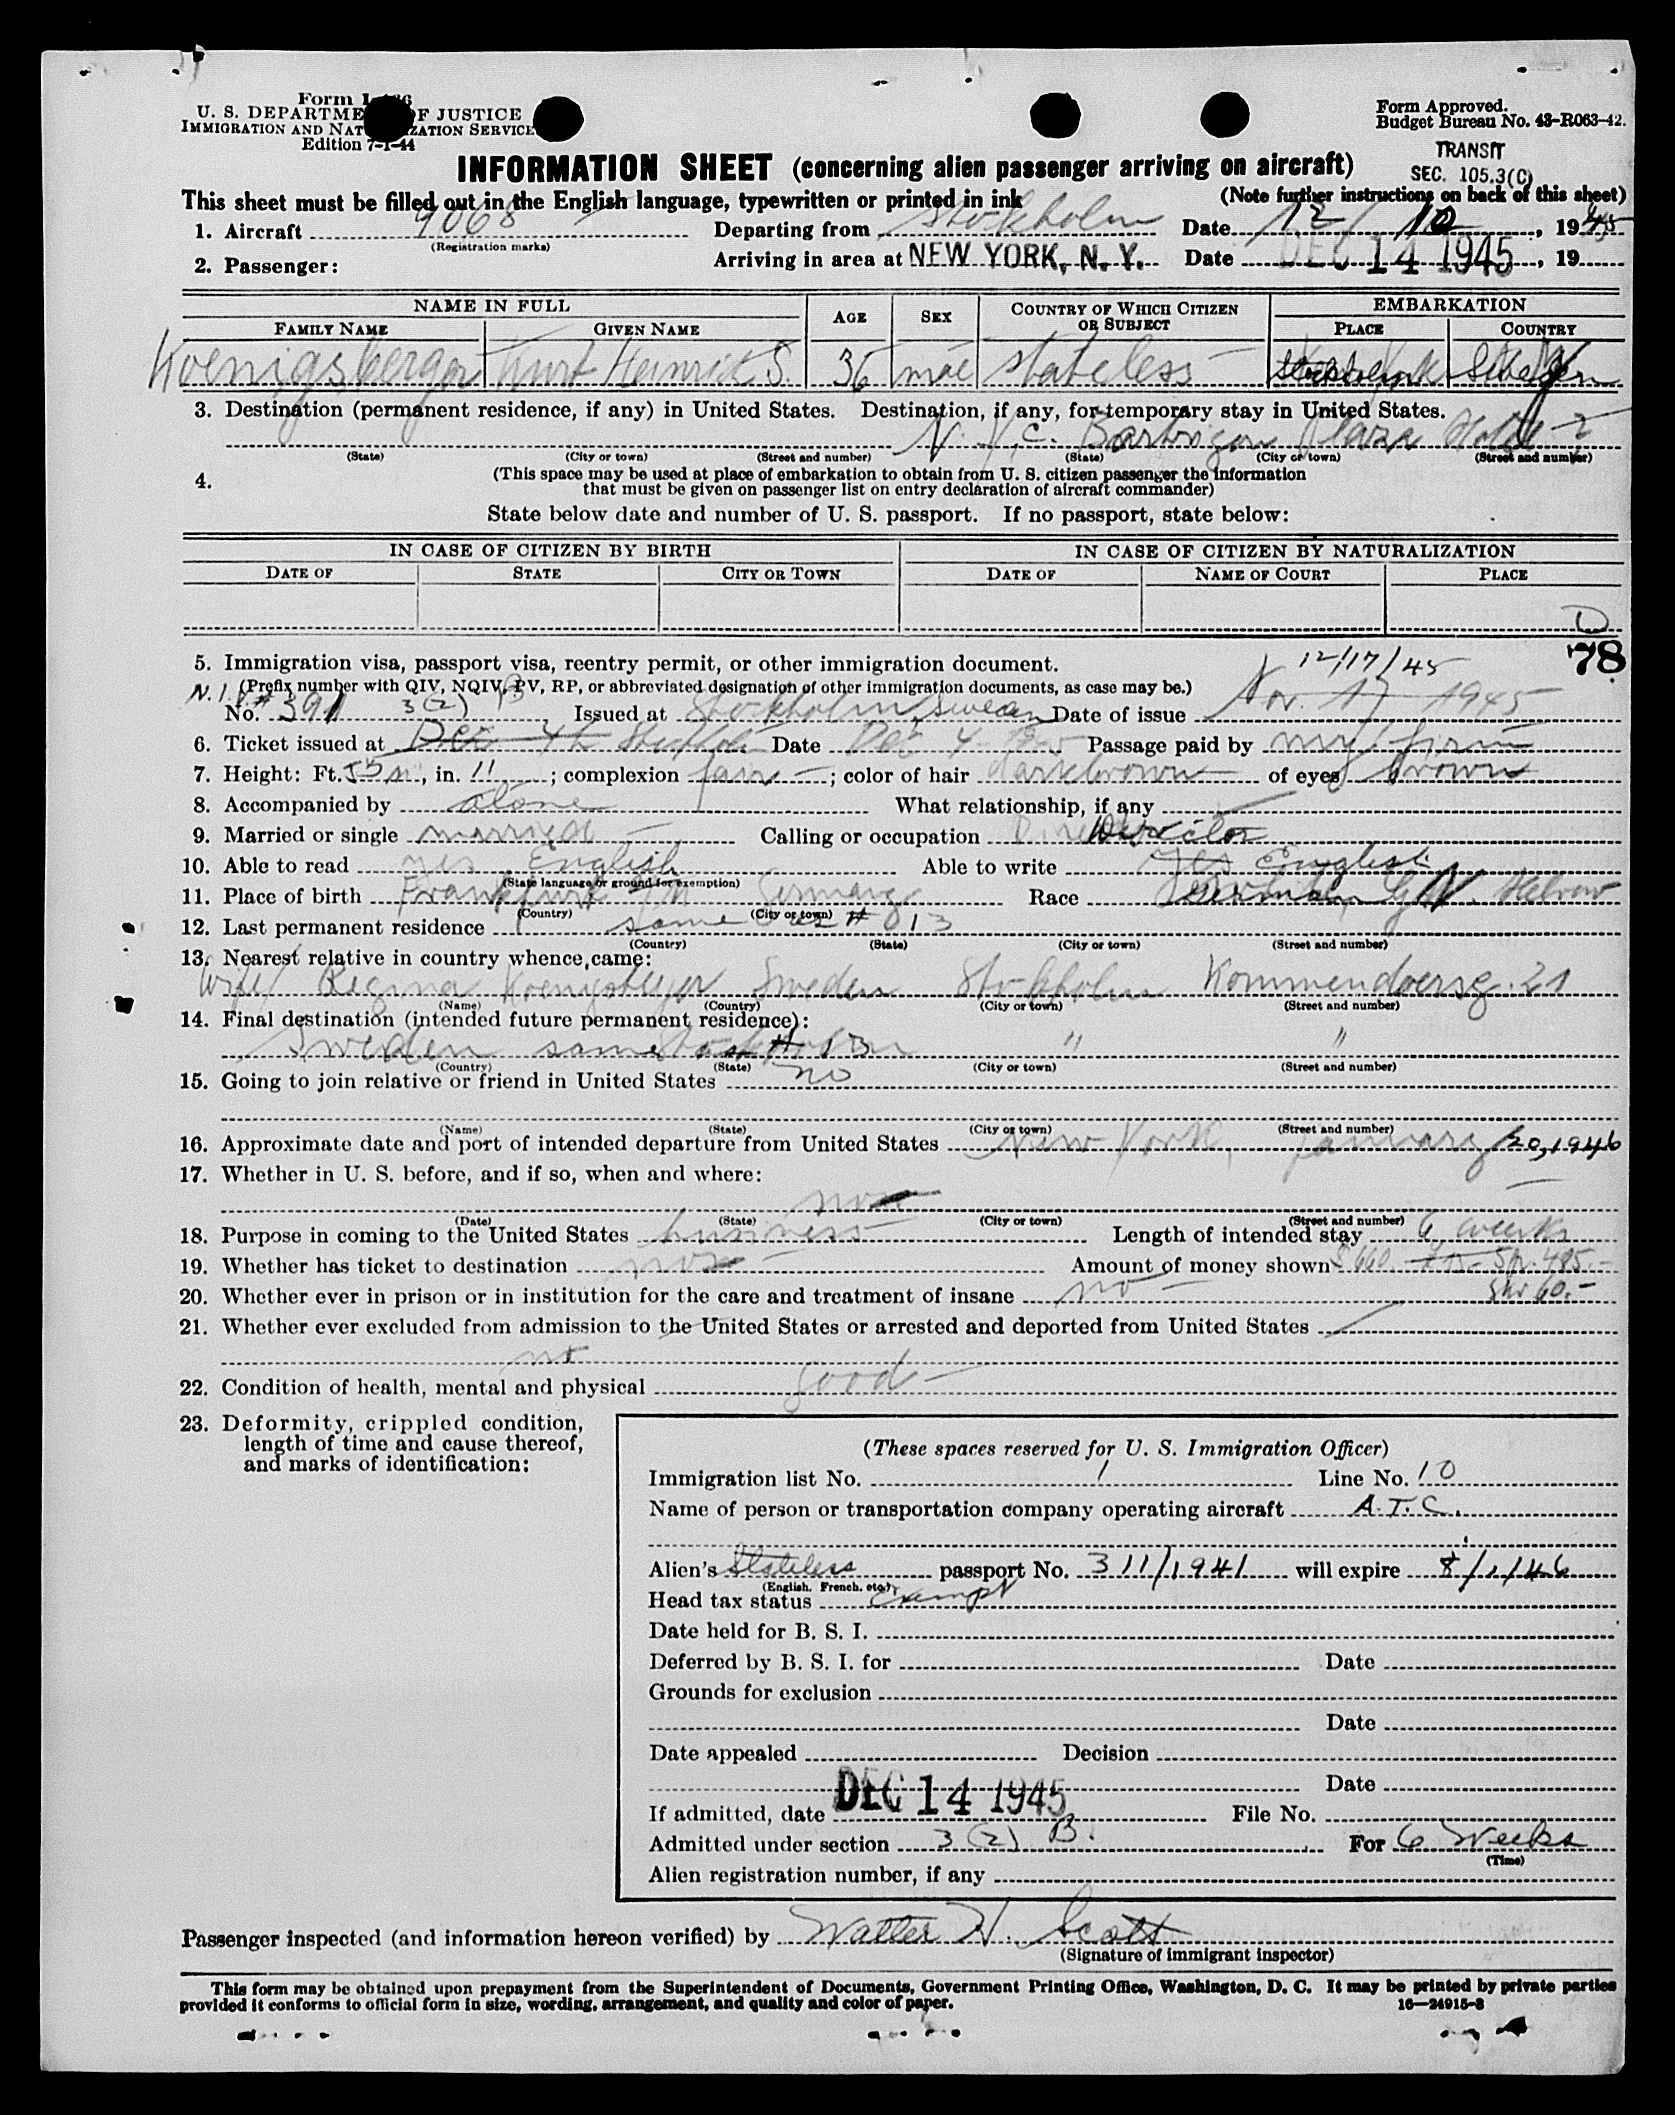 Form I-466
U. S. DEPARTMENT OF JUSTICE
IMMIGRATION AND NATURALIZATION SERVICE
Edition 7-1-44
Form Approved.
Budget Bureau No. 43-R063-42.
TRANSIT
SEC. 105.3(C)
INFORMATION SHEET (concerning alien passenger arriving on aircraft)
This sheet must be filled out in the English language, typewritten or printed in ink (Note further instructions on back of this sheet)
1. Aircraft 9068 Departing from Stockholm Date 12/10, 1945
(Registration marks)
2. Passenger: Arriving in area at NEW YORK, N. Y. Date DEC 14 1945, 19
NAME IN FULL AGE SEX COUNTRY OF WHICH CITIZEN OR SUBJECT EMBARKATION
FAMILY NAME GIVEN NAME PLACE COUNTRY
Koenigsberger Kurt Heinrich S. 36 male stateless
3. Destination (permanent residence, if any) in United States. Destination, if any, for temporary stay in United States.
N. Y. C. Barbizon Plaza Hotel
(State) (City or town) (Street and number) (State) (City or town) (Street and number)
4. (This space may be used at place of embarkation to obtain from U. S. citizen passenger the information
that must be given on passenger list on entry declaration of aircraft commander)
State below date and number of U. S. passport. If no passport, state below:
IN CASE OF CITIZEN BY BIRTH IN CASE OF CITIZEN BY NATURALIZATION
DATE OF STATE CITY OR TOWN DATE OF NAME OF COURT PLACE
D
78
5. Immigration visa, passport visa, reentry permit, or other immigration document. 12/17/45
N.I.V.# (Prefix number with QIV, NQIV, PV, RP, or abbreviated designation of other immigration documents, as case may be.)
No. 391 3(2) B Issued at Stockholm, Sweden Date of issue Nov. 17 1945
6. Ticket issued at Dec 4th Stockholm Date Dec 4 Passage paid by my firm
7. Height: Ft. 5, in. 11; complexion fair; color of hair darkbrown of eyes brown
8. Accompanied by alone What relationship, if any
9. Married or single married Calling or occupation Director
10. Able to read yes English Able to write Yes English
(State language or ground for exemption)
11. Place of birth Frankfurt Germany Race German Hebrew
(Country) (City or town)
12. Last permanent residence same as # 13
(Country) (State) (City or town) (Street and number)
13. Nearest relative in country whence came:
Wife Regina Koenigsberger Sweden Stockholm Kommendoersg. 21
(Name) (Country) (City or town) (Street and number)
14. Final destination (intended future permanent residence):
Sweden same as # 13 " "
(Country) (State) (City or town) (Street and number)
15. Going to join relative or friend in United States no
(Name) (State) (City or town) (Street and number)
16. Approximate date and port of intended departure from United States New York, January 20, 1946
17. Whether in U. S. before, and if so, when and where:
(Date) (State) (City or town) (Street and number)
18. Purpose in coming to the United States business Length of intended stay 6 weeks
19. Whether has ticket to destination Amount of money shown $ 660.
20. Whether ever in prison or in institution for the care and treatment of insane no Skr 60.-
21. Whether ever excluded from admission to the United States or arrested and deported from United States
no
22. Condition of health, mental and physical good
23. Deformity, crippled condition,
length of time and cause thereof,
and marks of identification:
(These spaces reserved for U. S. Immigration Officer)
Immigration list No. 1 Line No. 10
Name of person or transportation company operating aircraft A.T.C.
Alien's Stateless passport No. 311/1941 will expire 8/1/46
(English, French, etc.)
Head tax status exempt
Date held for B. S. I.
Deferred by B. S. I. for Date
Grounds for exclusion
Date
Date appealed Decision
Date
If admitted, date DEC 14 1945 File No.
Admitted under section 3(2) B. For 6 Weeks
(Time)
Alien registration number, if any
Passenger inspected (and information hereon verified) by Walter H. Scott
(Signature of immigrant inspector)
This form may be obtained upon prepayment from the Superintendent of Documents, Government Printing Office, Washington, D. C. It may be printed by private parties
provided it conforms to official form in size, wording, arrangement, and quality and color of paper. 16—24915-3